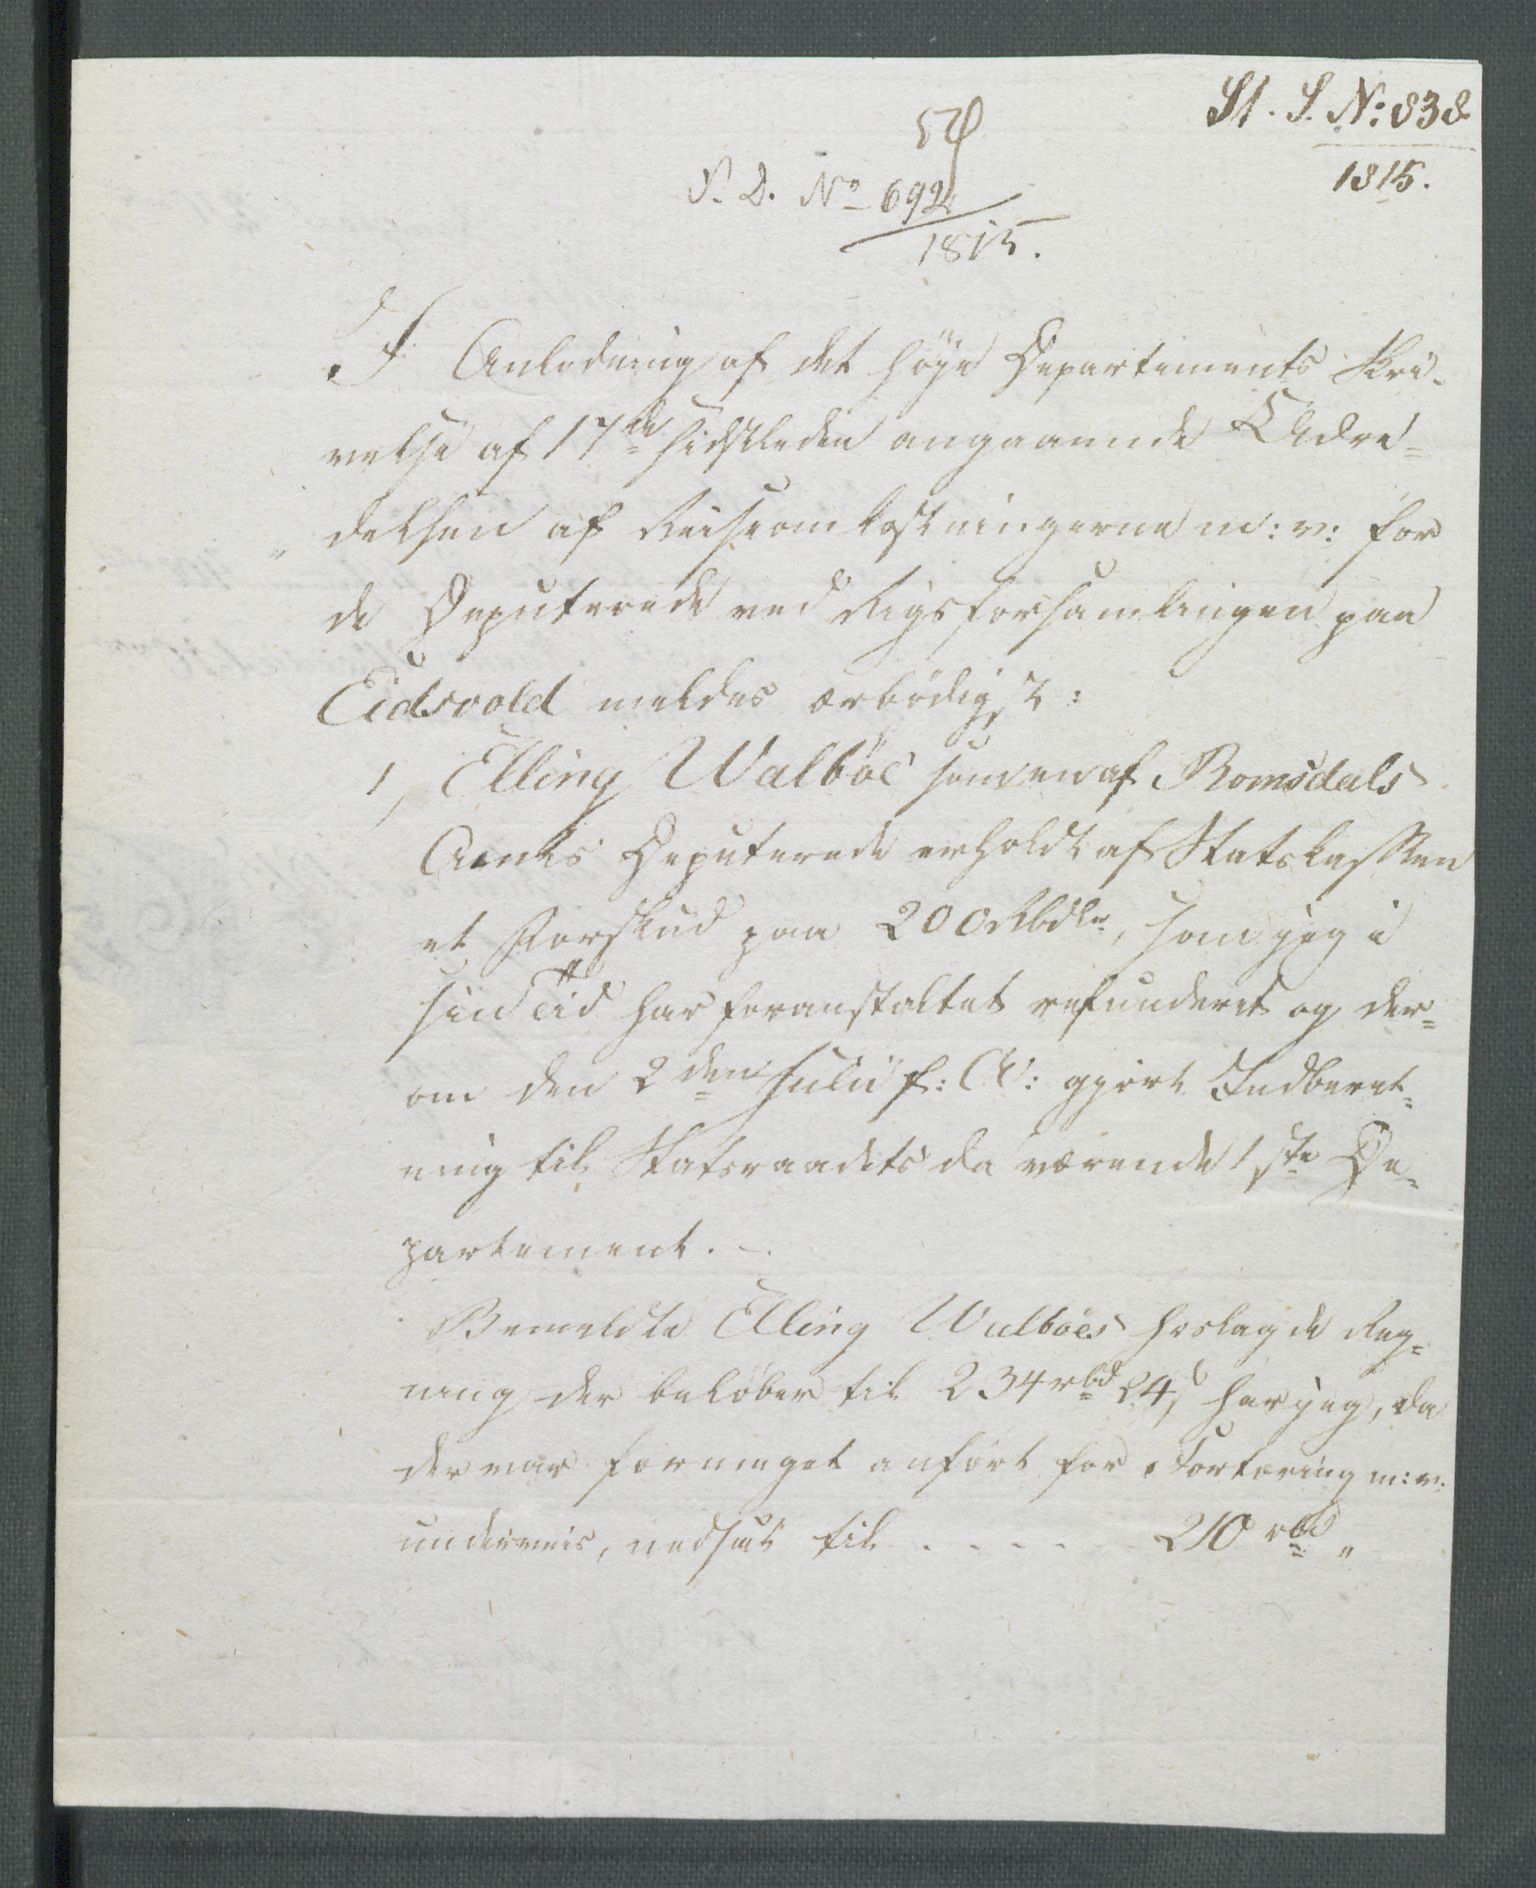 St. S. No: 838
1815.
F. D. No 692
1815.
I Anledning af det høye Departements Skri-
velse af 17de sidstleden angaaende Udre-
delsen af Reiseomkostningerne m: v: for
de Deputerede ved Rigsforsamlingen paa
Eidsvold meldes ærbødigst:
1, Elling Walböe som en af Romsdals
Amts Deputerede erholdt af Statskassen
et Forskud paa 200 Rbdlr, som jeg i
sin Tiid har foranstaltet refunderet og der-
om den 2den Julii f: A: gjört Indberet-
ning til Statsraadets da værende 1ste De-
partement. -
Bemeldte Elling Walböes Reg-
ning der beløber til 234 rbd 24 s har jeg, da
der var formeget anført for Fortæring m: v:
underveis, nedsat til . . . . 210 rbd "